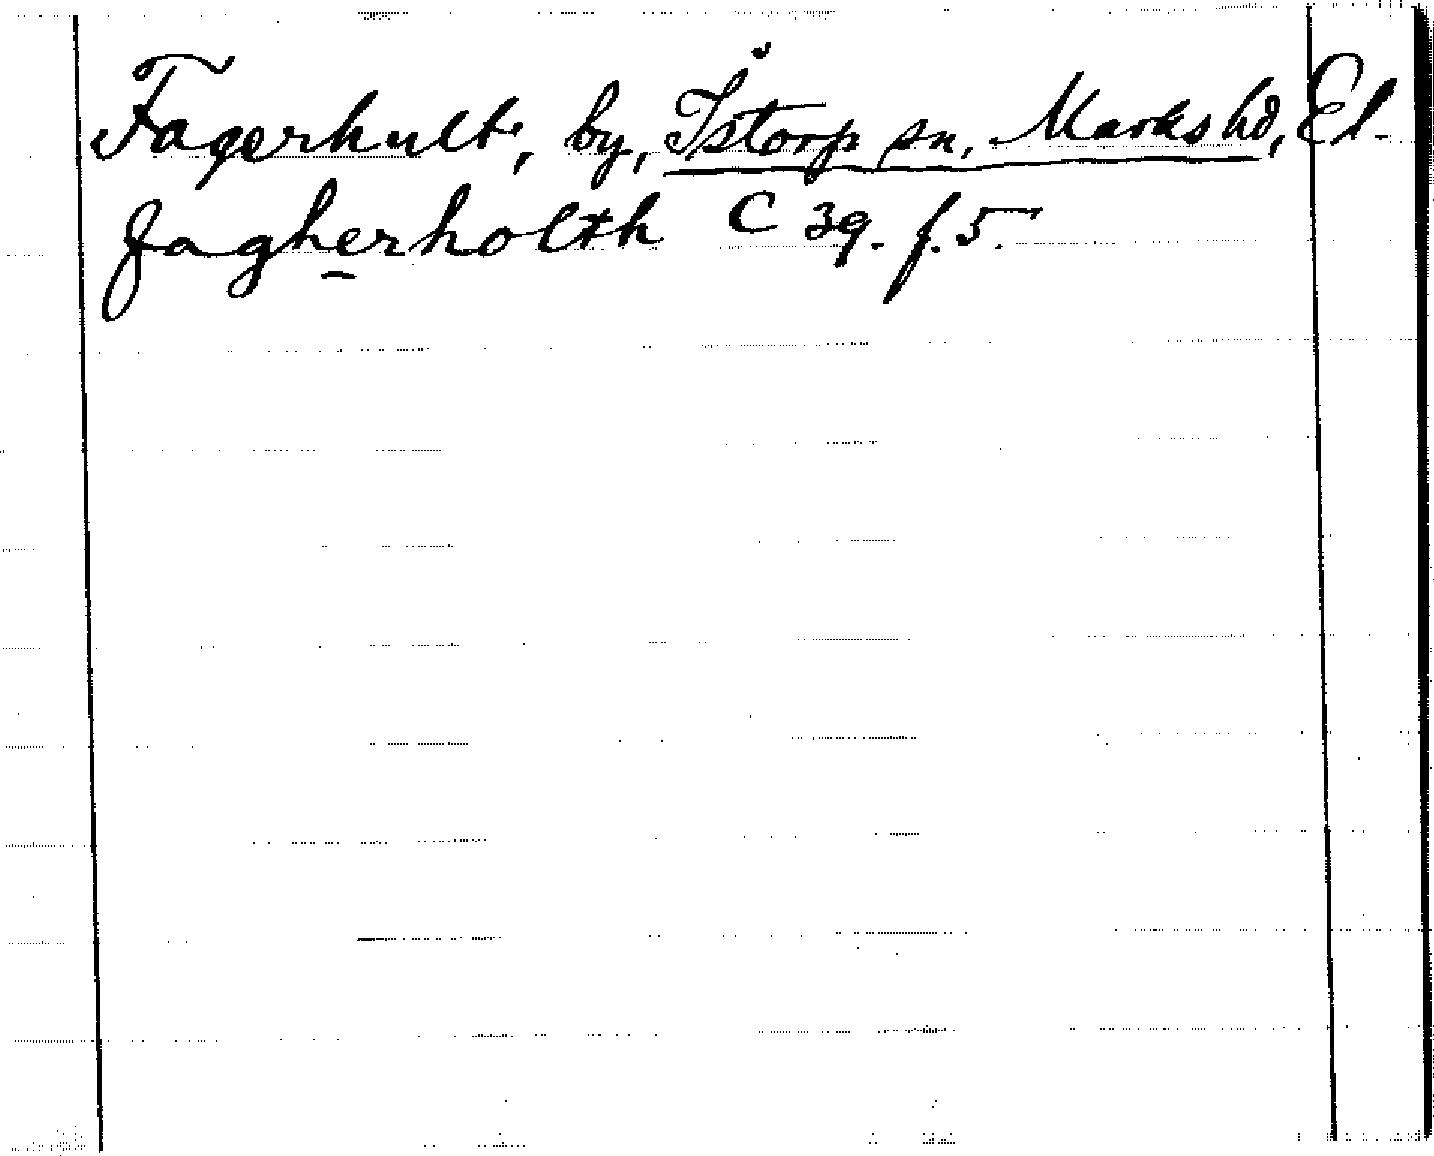 Fagerhult, by, Istorp sn, Marks hd, El.
fagherholth C 39. f. 5.